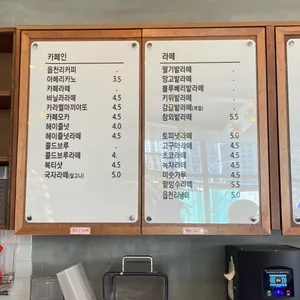 카페인
읍천리커피 .
아메리카노 3.5
카페라떼 .
바닐라라떼 4.5
카라멜마끼아또 4.5
카페모카 4.5
헤이즐넛 4.0
헤이즐라떼 4.5
콜드브루 .
콜드브루라떼 4.
복티샷 4.5
국자라떼(달고나) 5.0
라떼
딸기밭라떼 .
망고밭라떼 .
블루베리밭라떼 .
키위밭라떼 .
감귤밭라떼(계절) .
참외밭라떼 5.5
토피넛라떼 5.0
고구마라떼 4.5
초코라떼 4.5
녹차라떼 4.5
미숫가루 4.5
팥빙수라떼 5.5
읍천리냉마 5.0